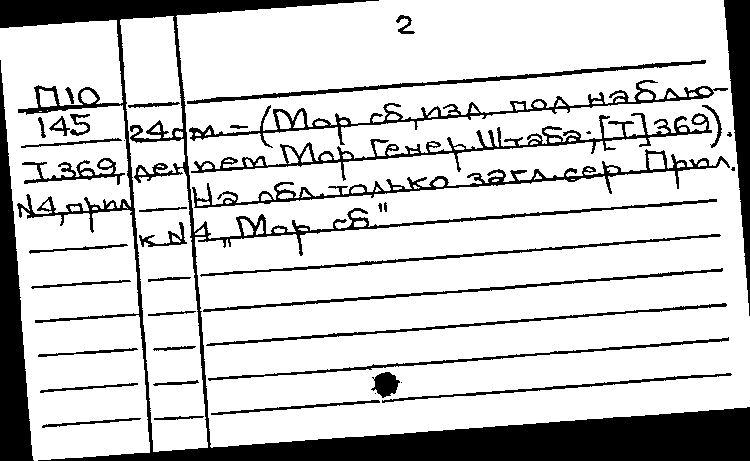 2
П10
145 24см. – (Мор сб, изд, под наблю-
Т.369, дением Мор. Генер. Штаба; [Т.] 369).
N4, прил На обл. только загл. сер. Прил.
к N4 „Мор. сб."